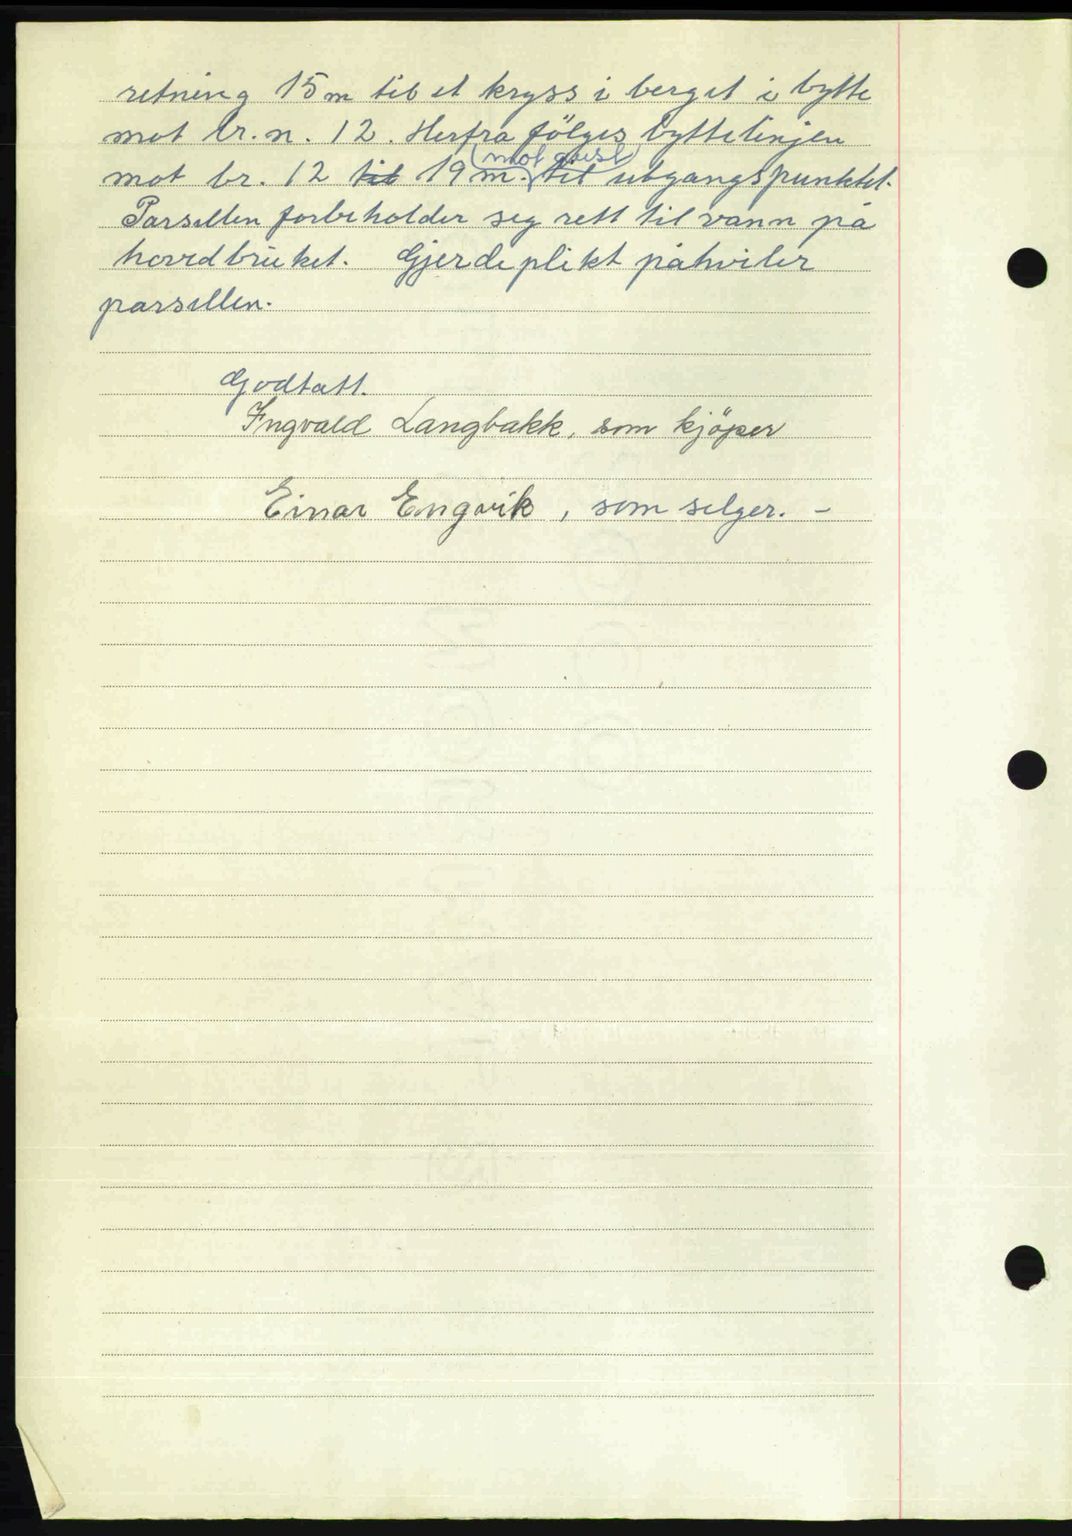 retning 15 m til et kryss i berget i bytte
mot br. n. 12. Herfra følges byttelinjen
mot br. 12 til 19 m. (mot øvest) til utgangspunktet.
Parsellen forbeholder seg rett til vann på
hovedbruket. Gjerdeplikt påhviler
parsellen.
Godtatt.
Ingvald Langbakk, som kjöper
Einar Engvik, som selger. -